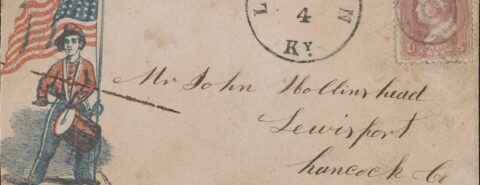 4
KY.
Mr John Hollinshead
Lewisport
Hancock Co